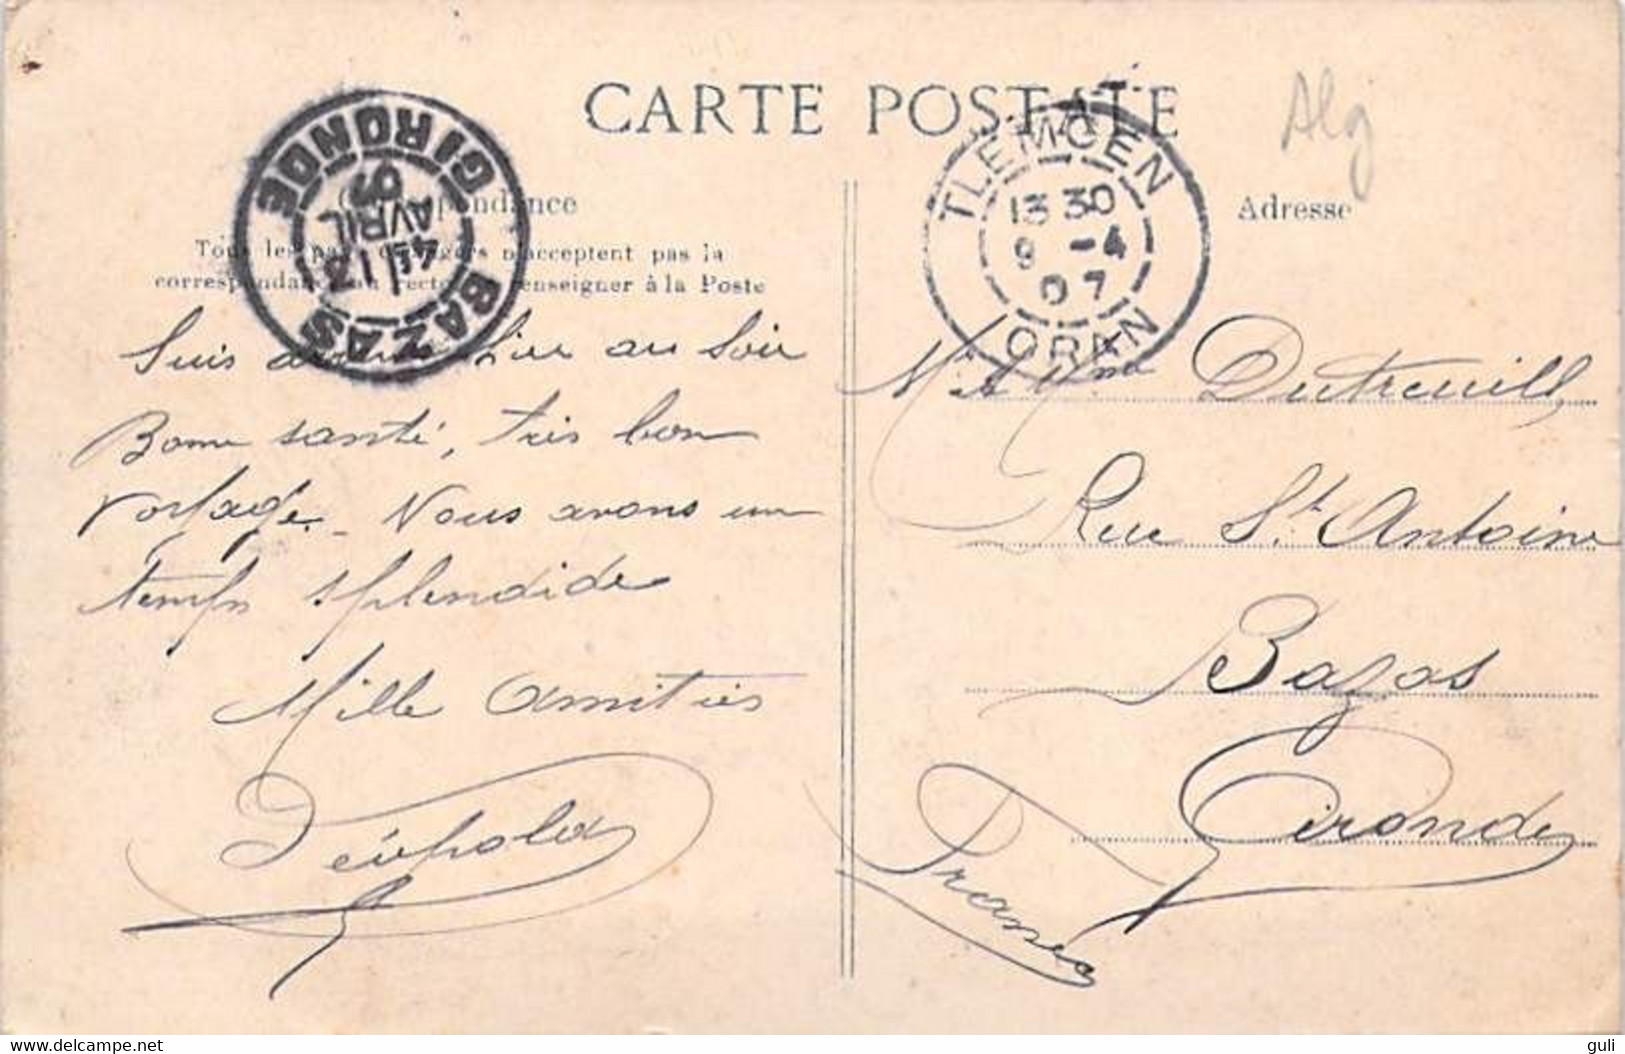 CARTE POSTALE
Alg
Correspondance
Adresse
Tous les pays étrangers n'acceptent pas la
correspondance au recto se renseigner à la Poste
BAZAS GIRONDE
4E 13
AVRIL
TLEMCEN ORAN
13 30
9 -4
07
Suis hier au soir
Bonne santé, très bon
voyage. Nous avons un
temps splendide
Mille amitiés
Léopold
Mr & Mme Dutreuilh
Rue St Antoine
Bazas
Gironde
France
www.delcampe.net
guli